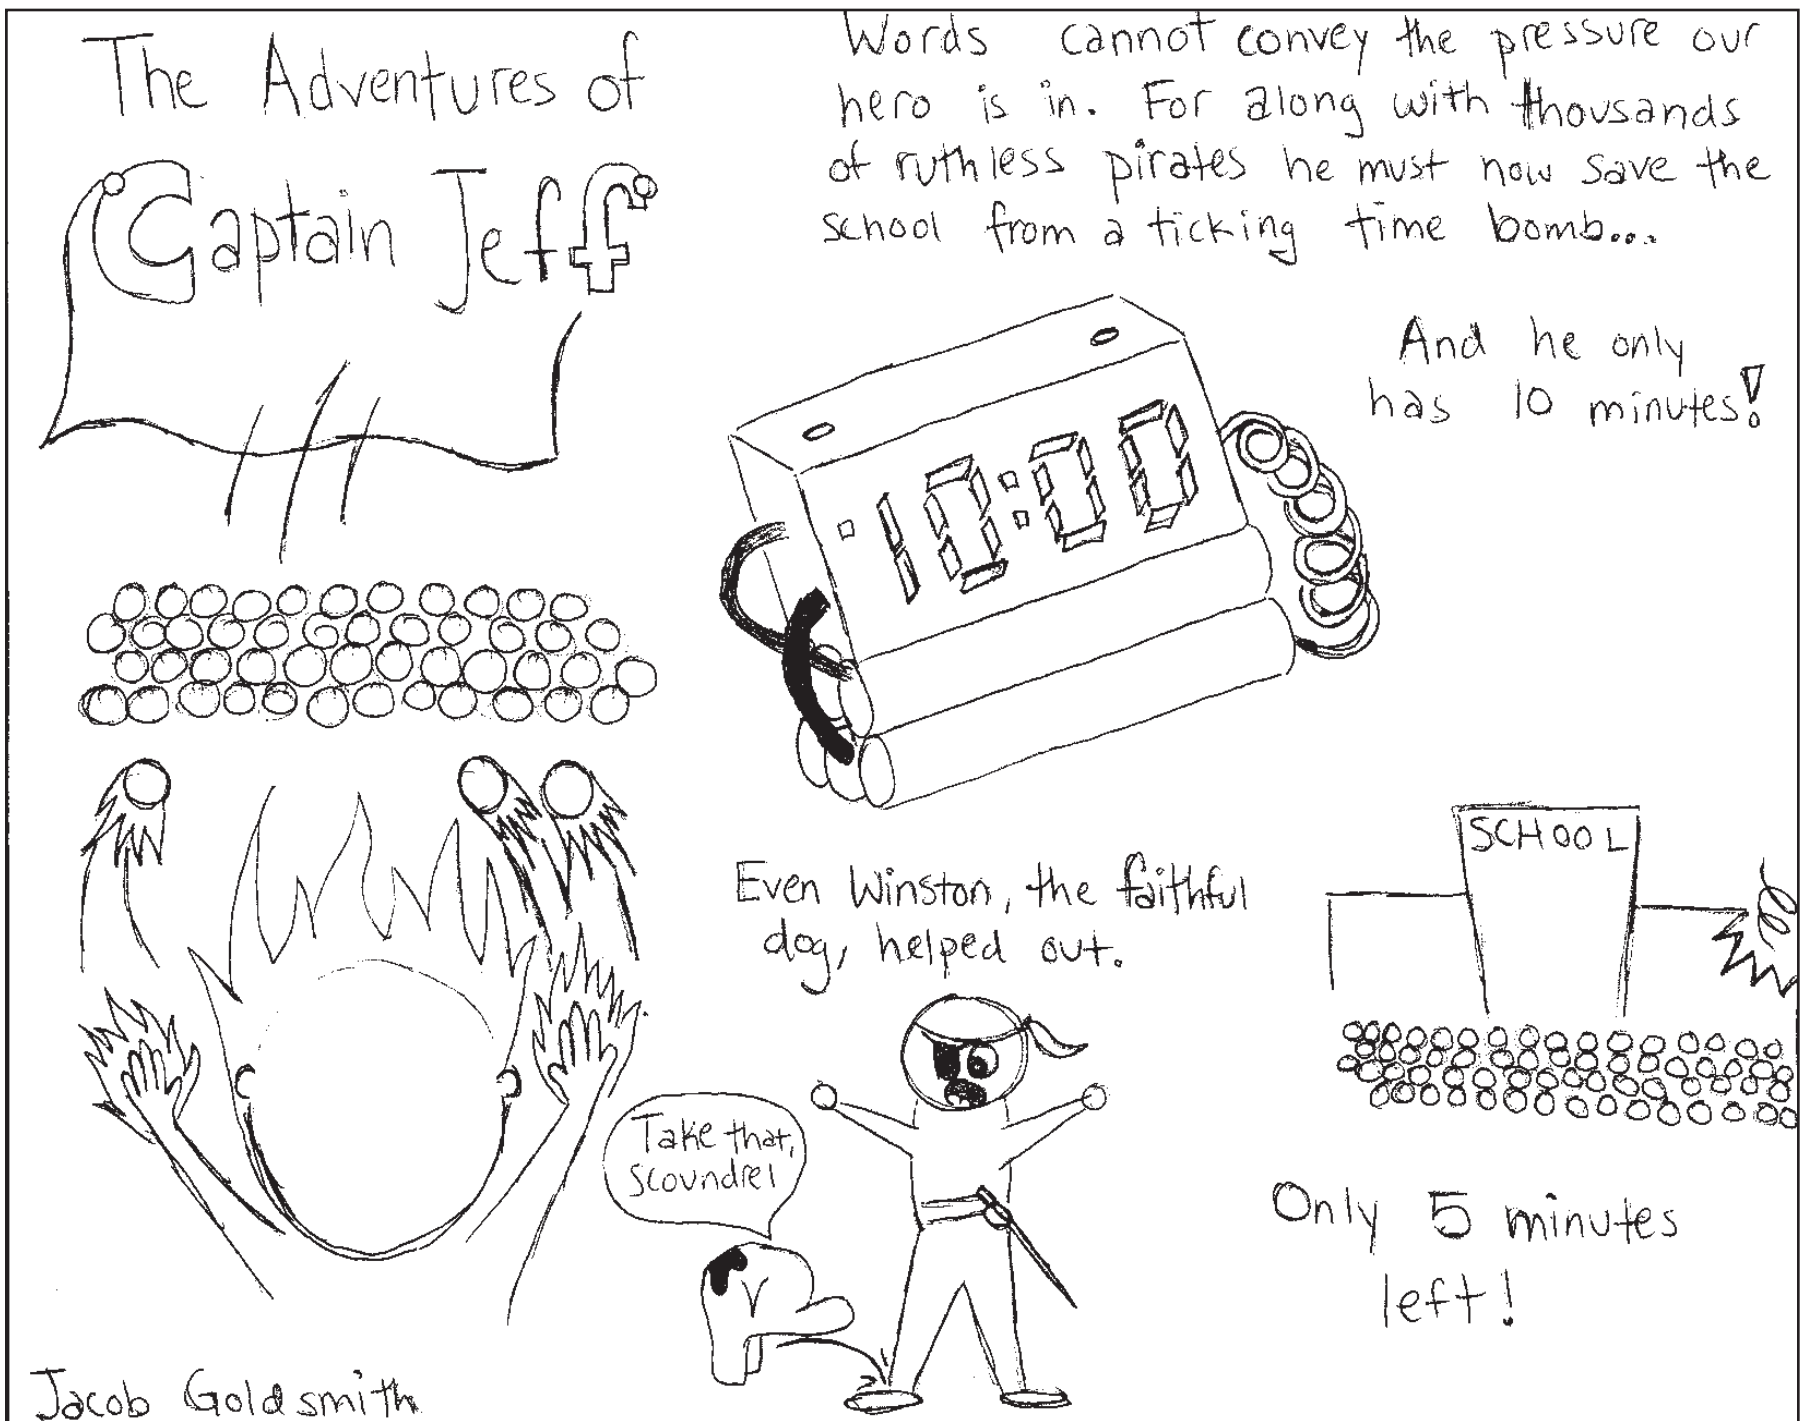 The Adventures of
Captain Jeff
Words cannot convey the pressure our
hero is in. For along with thousands
of ruthless pirates he must now save the
school from a ticking time bomb...
And he only
has 10 minutes!
10:00
Even Winston, the faithful
dog, helped out.
Take that,
scoundrel
SCHOOL
Only 5 minutes
left!
Jacob Goldsmith